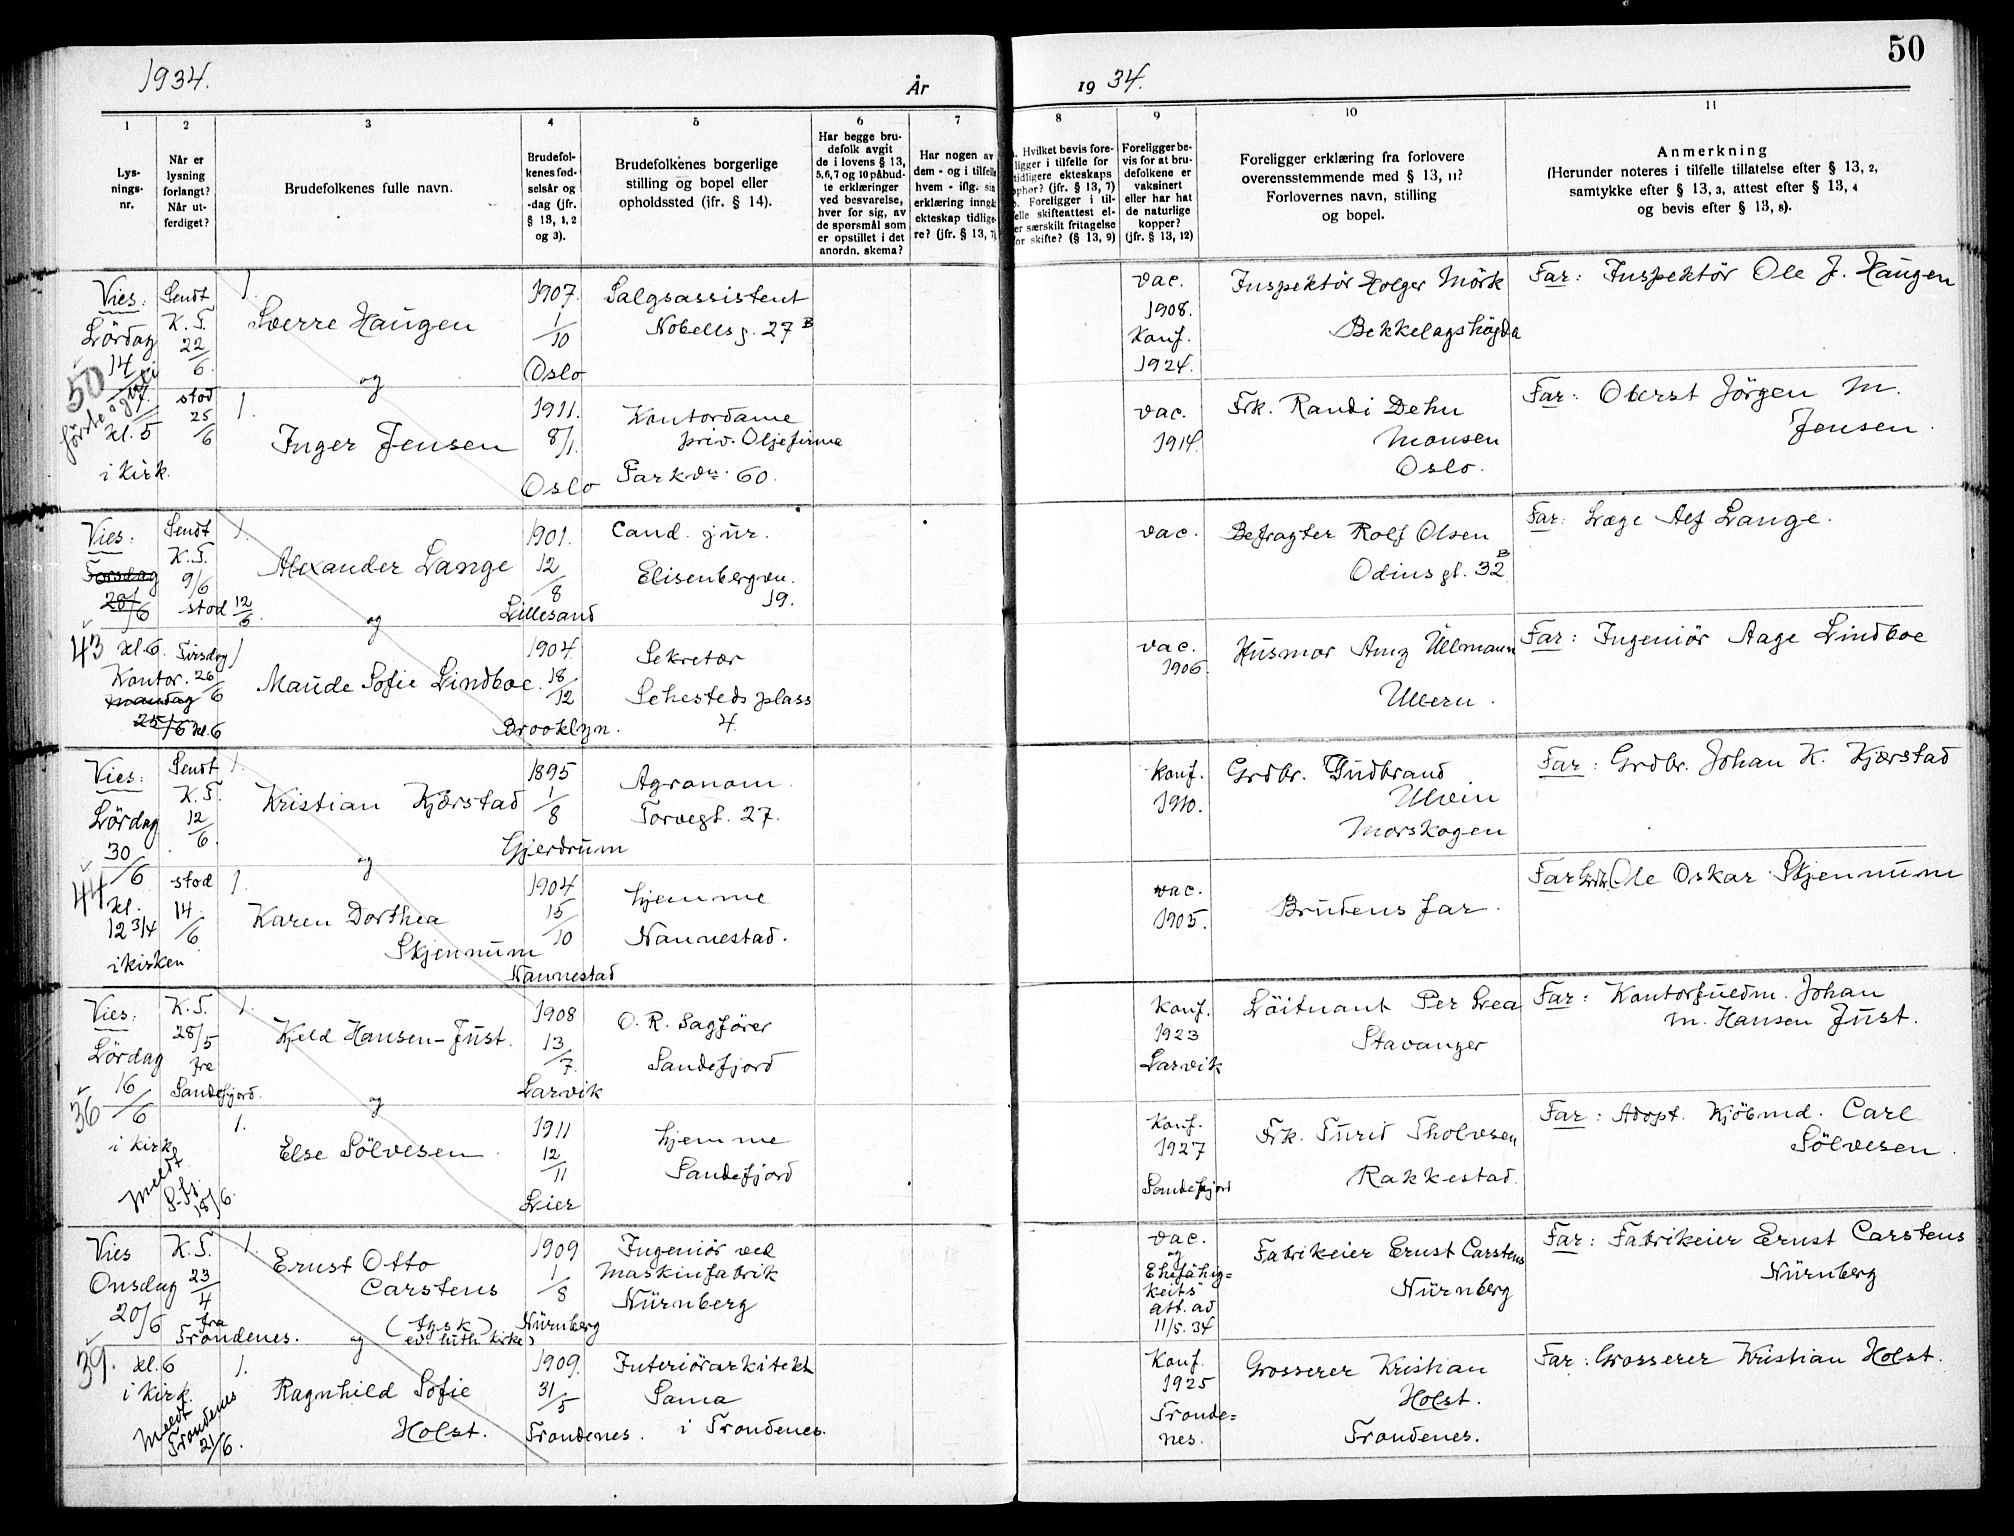 50
1934.
År
19 34.
1
Lys-
nings-
nr.
2
Når er
lysning
forlangt?
Når ut-
ferdiget?
3
Brudefolkenes fulle navn.
4
Brudefol-
kenes fød-
selsår og
-dag (jfr.
§ 13, 1, 2
og 3).
5
Brudefolkenes borgerlige
stilling og bopel eller
opholdssted (jfr. § 14).
6
Har begge bru-
defolk avgit
de i lovens § 13,
5,6,7 og 10 påbud-
te erklæringer
ved besvarelse,
hver for sig, av
de spørsmål som
er opstillet i det
anordn. skema?
7
Har nogen av
dem - og i tilfelle
hvem - iflg. sin
erklæring inngå
ekteskap tidlige-
re? (jfr. § 13, 7)
8
Hvilket bevis fore-
ligger i tilfelle for
tidligere ekteskaps
ophør? (jfr. § 13, 7)
Foreligger i til-
felle skifteattest el-
er særskilt fritagelse
for skifte? (§ 13, 9)
9
Foreligger be-
vis for at bru-
defolkene er
vaksinert
eller har hat
de naturlige
kopper?
(jfr. § 13, 12)
10
Foreligger erklæring fra forlovere
overensstemmende med § 13, 11?
Forlovernes navn, stilling
og bopel.
11
Anmerkning
(Herunder noteres i tilfelle tillatelse efter § 13, 2,
samtykke efter § 13, 3, attest efter § 13, 4
og bevis efter § 13, 8).
50
Vies:
Lördag
14/7
kl. 5
i kirk.
Sendt
K.T.
22/6.
stod
25/6
1.
Sverre Haugen
og
1907.
1/10
Oslo
Salgsassistent
Nobelsg. 27 B
vac.
1908.
Konf.
1924.
Inspektör Holger Mörk
Bekkelagshögda
Far: Inspektör Ole J. Haugen
1.
Inger Jensen
1911.
8/1.
Oslo
Kontordame
priv. Oljefirma
Parkvn. 60.
vac.
1914.
Frk. Randi Dehn
Monsen
Oslo.
Far: Oberst Jörgen M.
Jensen.
43
Vies:
Torsdag
28/6
kl. 6.
Kontor.
Mandag
25/6 kl. 6
Sendt
K.T.
9/6
stod 12/6.
Tirsdag
26/6
1.
Alexander Lange
og
1901.
12/8
Lillesand
Cand. jur.
Elisenbergvn.
19.
vac.
Befragter Rolf Olsen
Odinsgt. 32 B
Far: Læge Alf Lange.
1
Maude Sofie Lindboe.
1904.
18/12
Brooklyn.
Sekretær
Sehesteds plass
4.
vac.
1906.
Husmor Amy Ullmann
Ullern.
Far: Ingeniör Aage Lindboe
44
Vies:
Lördag
30/6
kl.
12 3/4
i kirken
Sendt
K.T.
12/6.
stod
14/6.
1.
Kristian Kjærstad
og
1895
1/8
Gjerdrum
Agronom.
Torvegt. 27.
Konf.
1910.
Grdbr. Gudbrand
Ulvin
Morskogen
Far: Grdbr. Johan K. Kjærstad
1.
Karen Dorthea
Skjennum
1904
15/10
Nannestad
hjemme
Nannestad.
vac.
1905.
Brudens far.
Far Grdbr. Ole Oskar Skjennum
36
Vies:
Lördag
16/6
i kirk
Meldt
S.fj.
18/6.
K.T.
28/5
fra
Sandefjord.
1.
Kjeld Hansen-Just.
og
1908
13/7.
Larvik
O. R. Sagförer
Sandefjord
Konf.
1923
Larvik
Löitnant Per Lea
Stavanger
Far: Kontorfuldm. Johan
M. Hansen Just.
1.
Else Sölvesen
1911
12/11
Lier
hjemme
Sandefjord
Konf.
1927
Sandefjord
Frk. Turid Tholvsen
Rakkestad.
Far: Adopt. Kjöbmd. Carl
Sölvesen.
39.
Vies
Onsdag
20/6
kl. 6
i kirk.
Meldt
Trondenes
21/6.
K.T.
23/4
fra
Trondenes.
1.
Ernst Otto
Carstens
(tysk
ev. luth. kirke)
og
1909
1/8
Nürnberg
Ingeniör ved
Maskinfabrik
Nürnberg
vac.
og
Ehefähig=
keits
att. ad
11/5. 34
Fabrikeier Ernst Carstens
Nürnberg
Far: Fabrikeier Ernst Carstens
Nürnberg
1.
Ragnhild Sofie
Holst.
1909.
31/5
Trondenes.
Interiörarkitekt
Sama
i Trondenes.
Konf.
1925
Tronde=
nes.
Grosserer Kristian
Holst.
Trondenes.
Far: Grosserer Kristian Holst.